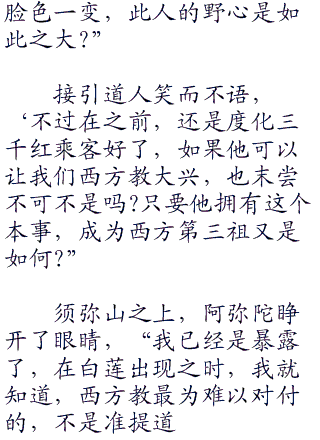 脸色一变，此人的野心是如
此之大?”
接引道人笑而不语，
‘不过在之前，还是度化三
千红乘客好了，如果他可以
让我们西方教大兴，也末尝
不可不是吗?只要他拥有这个
本事，成为西方第三祖又是
如何?”
须弥山之上，阿弥陀睁
开了眼睛，“我已经是暴露
了，在白莲出现之时，我就
知道，西方教最为难以对付
的，不是准提道